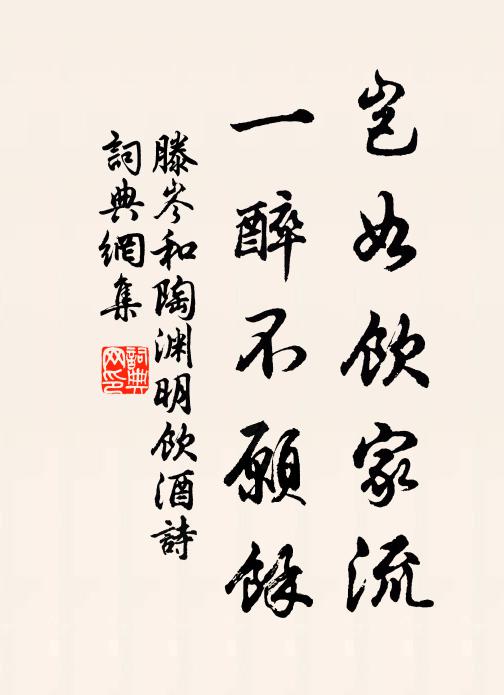 豈如飲家流
一醉不願餘
滕岑和陶淵明飲酒詩
詞典網集
詞典
网印